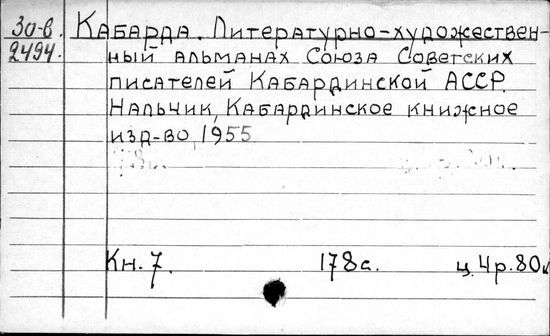 30-в. КАБАРДА. Литературно-художествен-
2494. ный альманах Союза Советских
писателей Кабардинской АССР.
Нальчик, Кабардинское книжное
изд-во, 1955
Кн. 7. 178с. ц. 4р. 80к